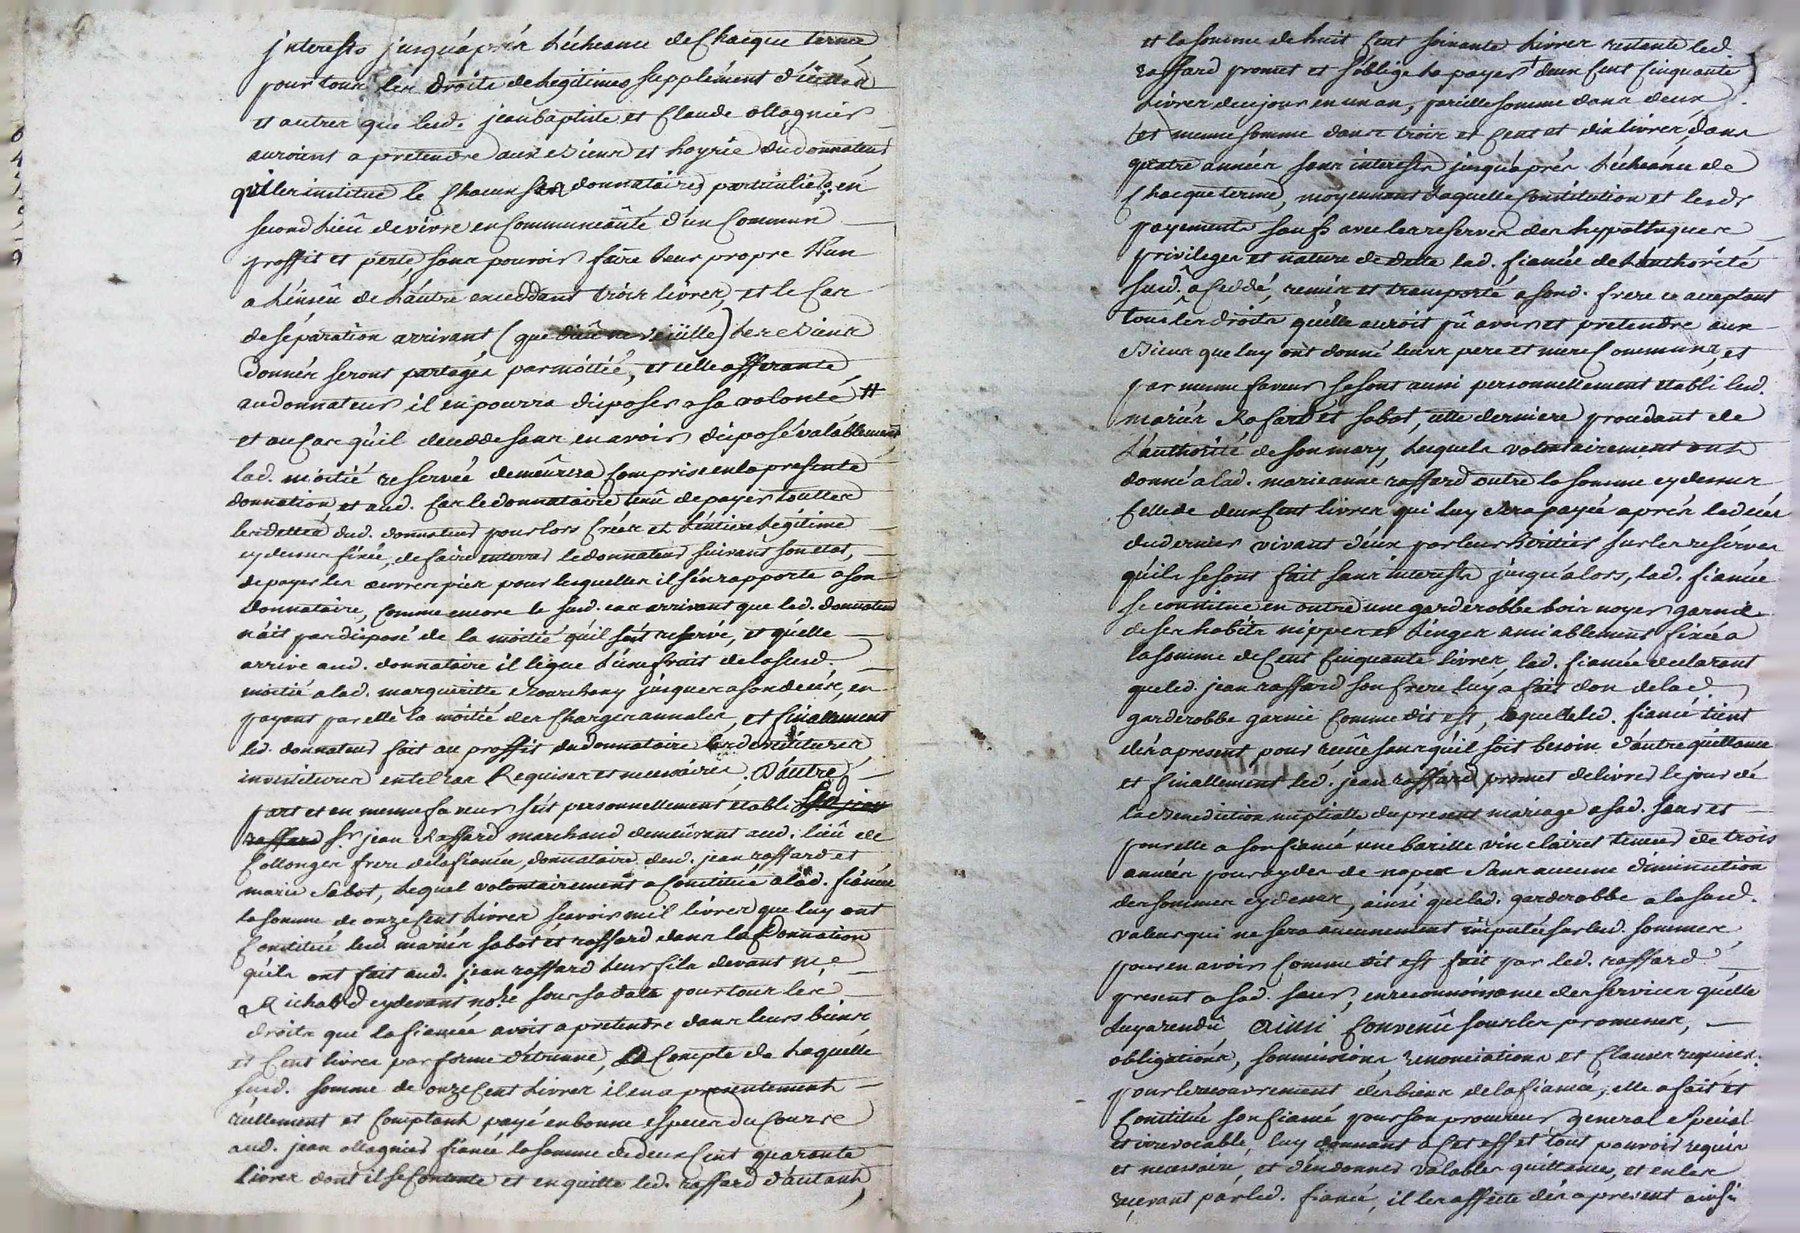 jnterests jusqu'aprés l'écheance de Chacque terme
pour tous les droits de Legitimes supplément d'icelles
et autres que lesd. jean baptiste et Claude ollagnier
auroient a pretendre aux Biens et hoyrie du donnateur
qu'il les institue le Chacun ses donnataires particuliers, en
second Liêu de vivre en Communeauté d'un Commun
proffit et perte sans pouvoir faire leur propre l'un
a l'insçû de l'autre excedant trois livres, et le Cas
de séparation arrivant (que dieû ne veüille) les Biens
donnés seront partagés par moitié, et celle afferante
au donnateur il en pourra disposer a sa volonté #
et au Cas qu'il decedde sans en avoir disposé valablement
lad. moitié reservée demeûrera Comprise en la presente
donnation et aud. Cas le donnataire tenû de payer touttes
les dettes dud. donnateur pour lors Créés et l'entiere Légitime
cy dessus fixée, de faire enterrer le donnateur suivant son etat,
de payer les œuvres pies pour lesquelles il s'en rapporte a son
donnataire, Comme encore le susd. cas arrivant que led. donnateur
n'ait pas disposé de la moitié qu'il s'est reservé, et qu'elle
arrive aud. donnataire il légue l'usufruit de la susd.
moitié a lad. margueritte Bourchany jusques a son decés, en
payant par elle la moitié des Charges annales, et finallement
led. donnateur fait au proffit du donnataire les devêtitures
investitures en tel cas Requises et necessaires. D'autre
part et en meme faveur s'est personnellement etabli sr. jean
raffard sr. jean Raffard marchand demeûrant aud. liêu de
Collonges frere de la fiancée, donnataire dud. jean raffard et
marie Sabot, lequel volontairement a Constitué a lad. fiancée
la somme de onze Cent Livres sçavoir mil livres que luy ont
Constitué lesd. mariés sabot et raffard dans la Donnation
qu'ils ont fait aud. jean raffard leur fils devant me.
Richard cy devant nore. sous sa date pour tous les
droits que la fiancée avoit a pretendre dans leurs biens
et Cent livres par forme d'étrenne, a Compte de laquelle
susd. somme de onze Cent Livres il en a presentement
réellement et Comptant payé en bonnes especes du Cours
aud. jean ollagnier fiancé la somme de deux Cent quarante
livres dont il se Contente et en quitte led. raffard d'autant,
et la somme de huit Cent soixante Livres restante led.
raffard promet et s'oblige la payer + deux Cent Cinquante
Livres de ce jour en un an, pareille somme dans deux
et meme somme dans trois et Cent et dix livres dans
quatre années sans interests jusqu'aprés l'écheance de
Chacque terme, moyennant laquelle Constitution et lesds
payements saufs avec les reserves des hypotheques
privileges et nature de dette lad. fiancée de l'authorité
susd. a Ceddé, remis et transporté a sond. frere ce acceptant
tous les droits qu'elle auroit pû avoir et pretendre aux
Biens que luy ont donné leurs pere et mere Communs, et
par meme faveur se sont aussi personnellement etabli lesd.
mariés Raffard et sabot, cette derniere procedant de
l'authorité de son mary, lesquels volontairement ont
donné a lad. marieanne raffard outre la somme cy dessus
Celle de deux Cent livres qui luy sera payée aprés le decés
du dernier vivant d'eux par leur heritier sur les reserves
qu'ils se sont fait sans interests jusqu'alors, lad. fiancée
se constitue en outre une garderobbe bois noyer garnie
de ses habits nippes et linges amiablement fixée a
la somme de Cent Cinquante livres, lad. fiancée declarant
que led. jean raffard son frere luy a fait don de lad.
garderobbe garnie Comme dit est, laquelle led. fiancé tient
dés apresent pour reçûe sans qu'il soit besoin d'autre quittance
et finallement led. jean raffard promet delivrer le jour de
la Benediction nuptialle du present mariage a sad. sœur et
pour elle a son fiancé une barille vin clairet tenue de trois
années pour ayder de nopce sans aucune diminution
des sommes cy dessus, ainsi que lad. garderobbe a la susd.
valeur qui ne sera aucunement imputée sur lesd. sommes,
pour en avoir Comme dit est fait par led. raffard
present a sad. sœur, en reconnoissance des services qu'elle
luy a rendû Ainsi Convenû sous les promesses,
obligations, soumissions, renonciations et Clauses requises.
pour le recouvrement des biens de la fiancée, elle a fait et
Constitué son fiancé pour son procureur general special
et irrevocable, luy donnant a Cet effet tout pouvoir requis
et necessaire, et d'en donner valables quittances, et en les
recevant par led. fiancé, il les affecte dés apresent ainsi